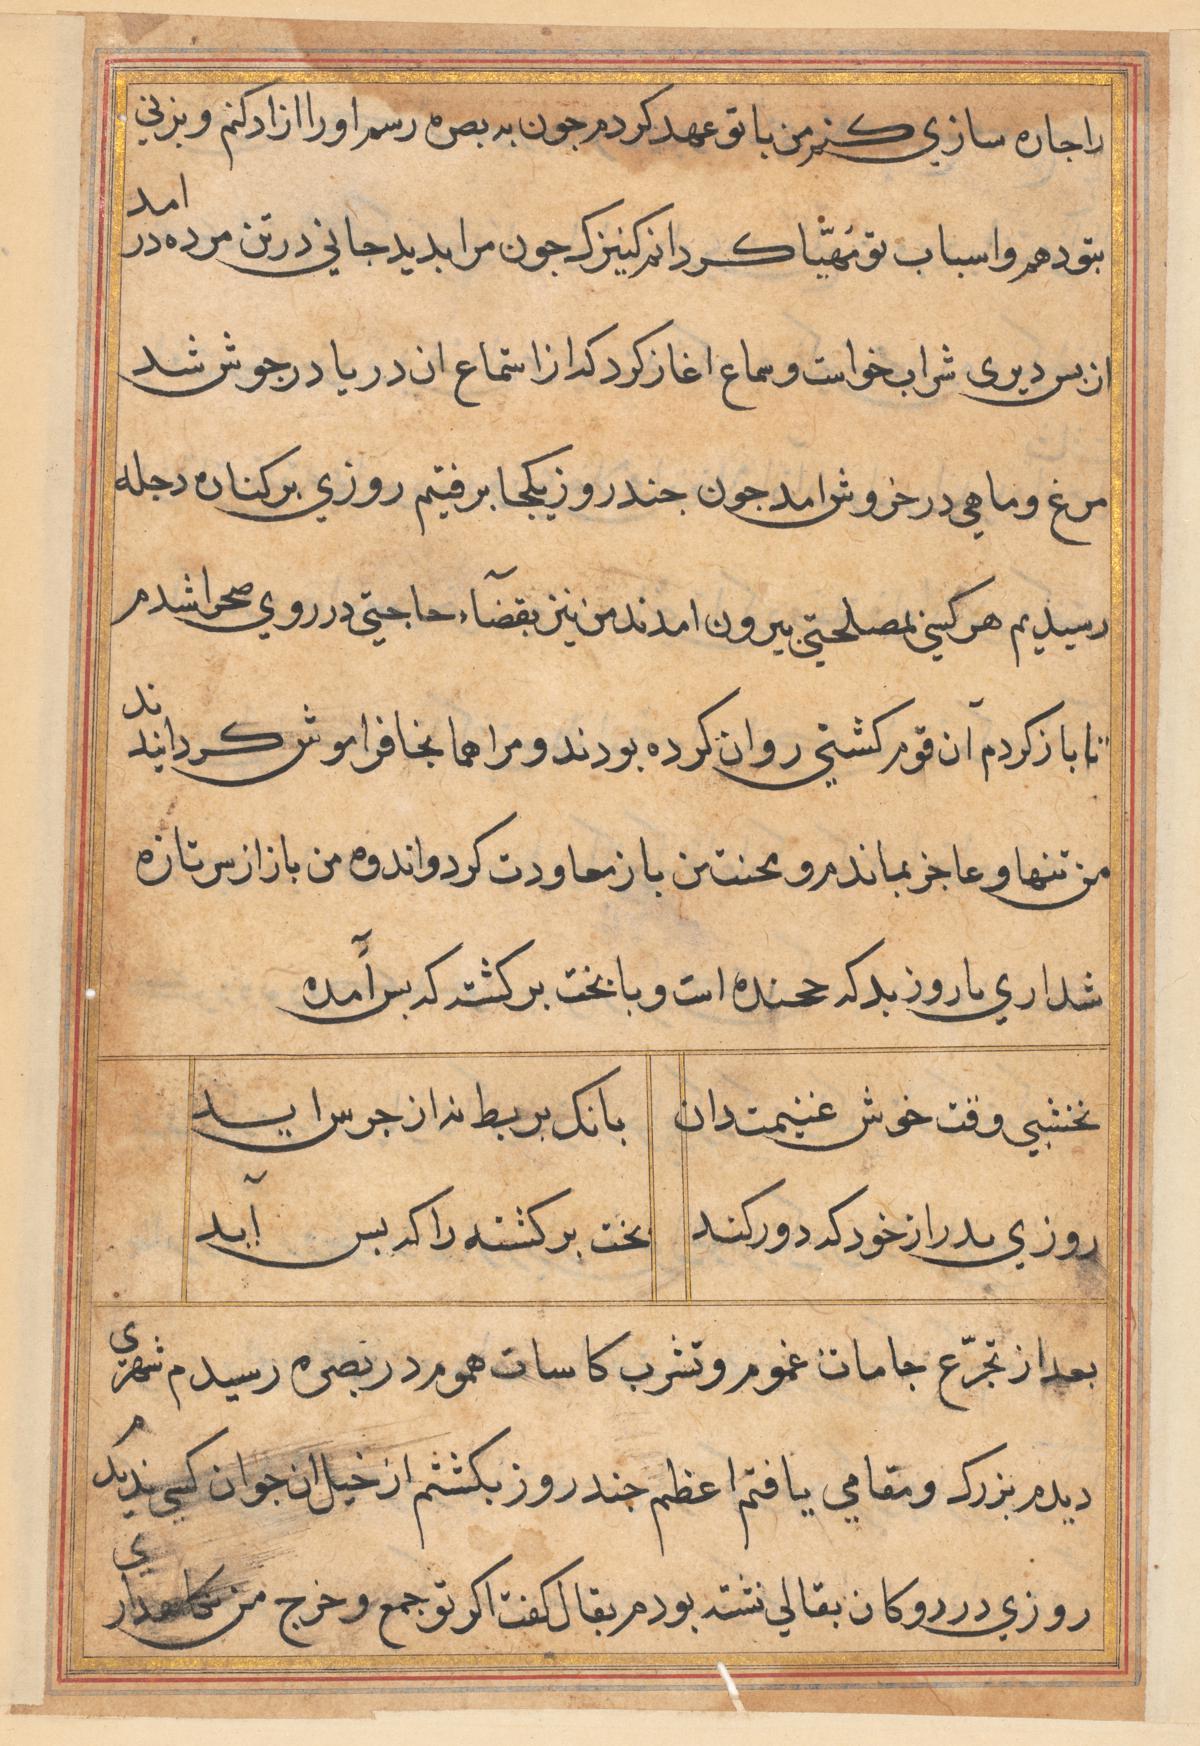 را جاره سازي كنم من با تو عهد كردم جون به بصره رسم او را ازاد كنم و بزني
بتو دهم و اسباب تو مهیّا كردانم كنيزك جون مرا بديد جاني در تن مرده در امد
از بس ديری شراب خواست و سماع اغاز كرد كه از استماع ان دريا در جوش شد
مرغ و ماهي در خروش امد جون جند روز يكجا برفتيم روزي بر كناره دجله
رسيذيم هر كسي بمصلحتي بيرون امدند من نيز بقضآء حاجتي در روي صحرا شدم
تا باز كردم آن قوم كشتي روان كرده بودند و مرا هما بخا فراموش كردانيدند
من تنها و عاجز بماندم و محنت من باز معاودت كرد و اندوه من باز از سر تازه
شد اري با روز بد كه است و با بخت بركشته كه بس آمده
نخشبي وقت خوش غنيمت دان
بانك بربط نه از جرس ايد
روزي بد را ز خود كه دور كند
بخت بركشته را كه بس آيد
بعد از تجرّع جامات غموم و تشرب كاسات هموم در بصره رسيدم شهري
ديدم بزرك و مقامي يافتم اعظم جند روز بكشتم از خيل ان جوان كسي نديدم
روزي در دوكان بقالي نشته بودم بقال كفت اكر تو جمع و خرج من نكاهداري